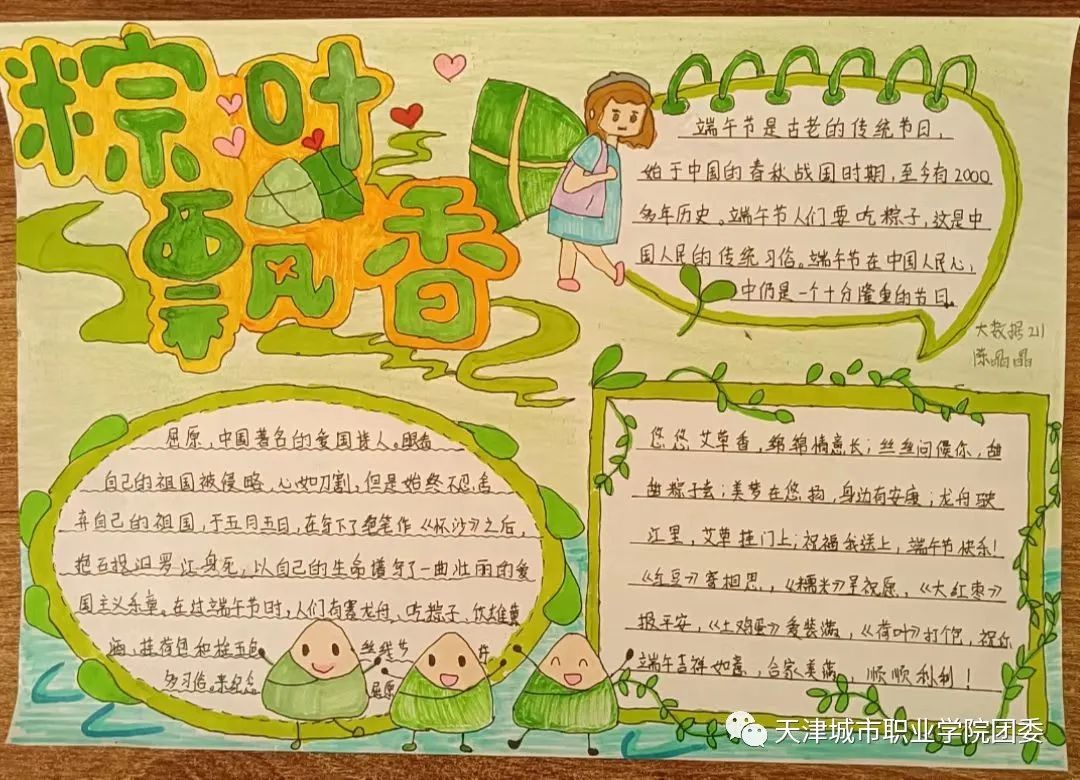 粽叶
飘香
端午节是古老的传统节日，
始于中国的春秋战国时期，至今有2000
多年历史。端午节人们要吃粽子，这是中
国人民的传统习俗。端午节在中国人民心，
中仍是一个十分隆重的节日。
大数据211
陈晶晶
屈原，中国著名的爱国诗人。眼看
自己的祖国被侵略，心如刀割，但是始终不忍舍
弃自己的祖国，于五月五日，在写下了绝笔作《怀沙》之后，
抱石投汨罗江身死，以自己的生命谱写了一曲壮丽的爱
国主义乐章。在过端午节时，人们有赛龙舟、吃粽子、饮雄黄
酒、挂荷包和拴五色丝线
多习俗。来纪念屈原
悠悠艾草香，绵绵情意长；丝丝问候你，曲
曲粽子玄；美梦在悠扬，身边有安康；龙舟驶
江里，艾草挂门上；祝福我送上，端午节快乐！
《红豆》寄相思，《糯米》早祝愿，《大红枣》
报平安，《土鸡蛋》爱装满，《荷叶》打包，祝你
端午吉祥如意，合家美满，顺顺利利！
天津城市职业学院团委